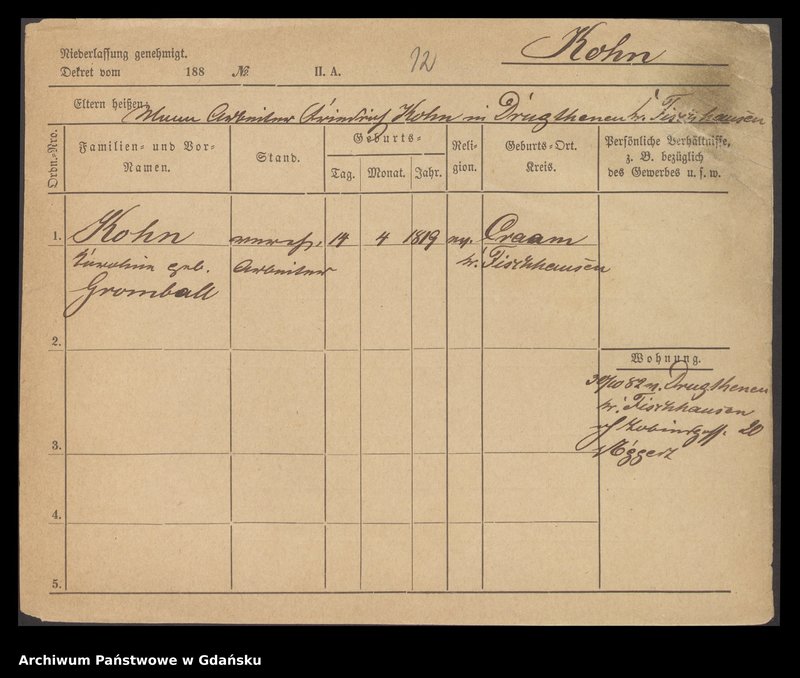 Niederlassung genehmigt.
Dekret vom 188 No. II. A.
12
Kohn
Eltern heißen: Mann Arbeiter Friedrich Kohn in Drugthenen Kr. Fischhausen
Ordn.-Nro.
Familien- und Vor-Namen.
Stand.
Geburts-
Tag. Monat. Jahr.
Religion.
Geburts-Ort.
Kreis.
Persönliche Verhältnisse,
z. B. bezüglich
des Gewerbes u. s. w.
1. Kohn 14 4 1819 ev. Craam
Karoline geb. Arbeiter Kr. Fischhausen
Gromball
2.
Wohnung.
30/10 82 n. Drugthenen
Kr. Fischhausen
20
3.
4.
5.
Archiwum Państwowe w Gdańsku